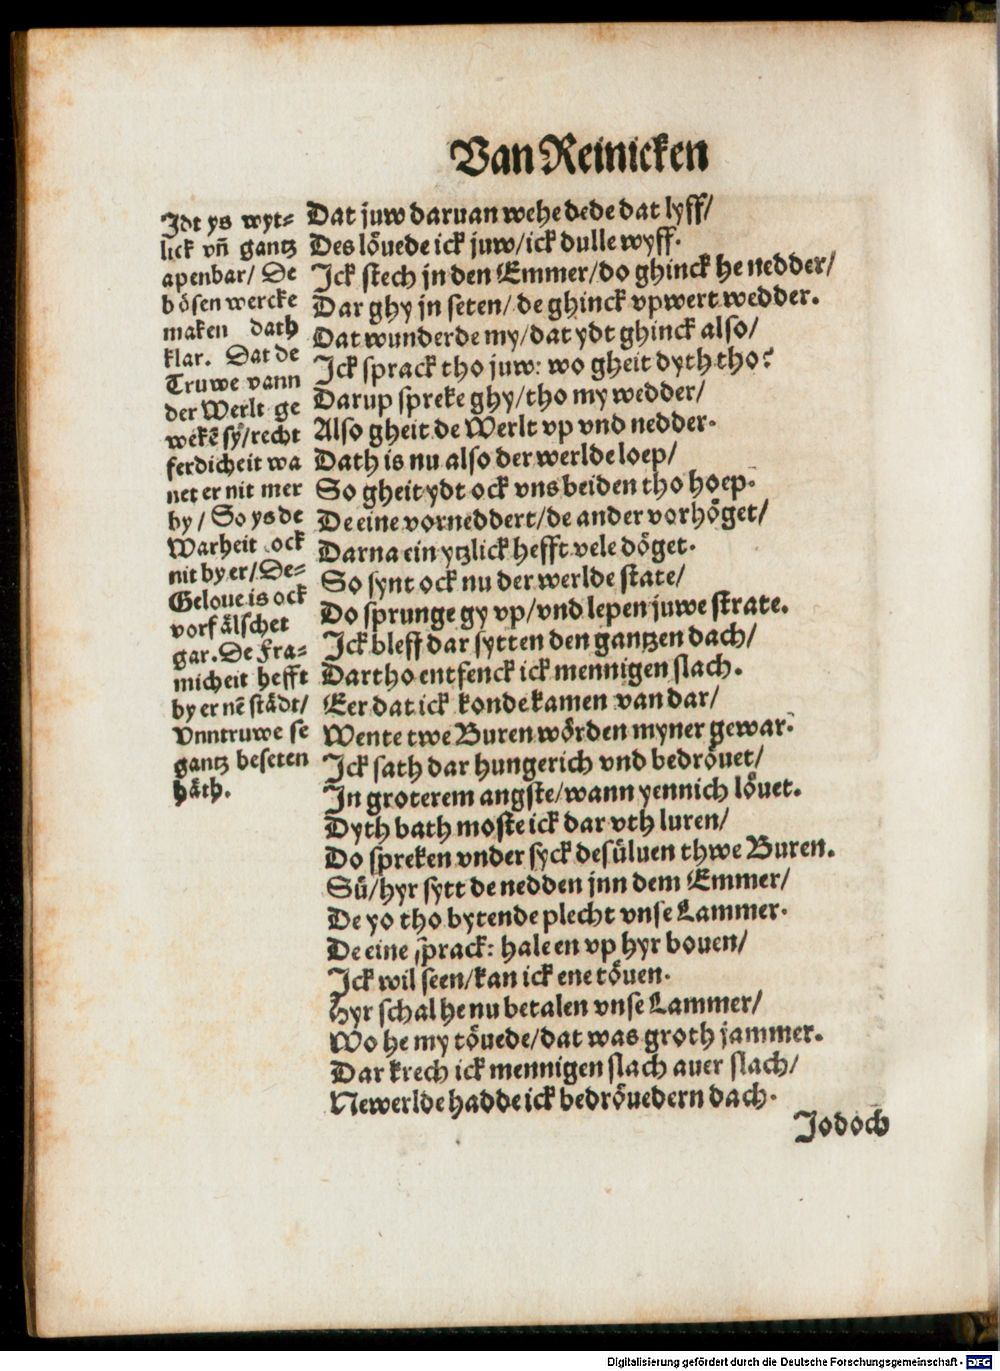 Van Reinicken
Idt ys wyt=
lick vñ gantz
apenbar/ De
bösen wercke
maken dath
klar. Dat de
Truwe vann
der Werlt ge
wekē sy/recht
ferdicheit wa
net er nit mer
by / So ys de
Warheit ock
nit by er/ De=
Geloue is ock
vorfälschet
gar. De Fra=
micheit hefft
by er nē städt/
Vnntruwe se
gantz beseten
häth.
Dat juw daruan wehe dede dat lyff/
Des löuede ick juw/ick dulle wyff.
Ick stech jn den Emmer/do ghinck he nedder/
Dar ghy jn seten/ de ghinck vpwert wedder.
Dat wunderde my/dat ydt ghinck also/
Ick sprack tho juw: wo gheit dyth tho?
Darup spreke ghy/tho my wedder/
Also gheit de Werlt vp vnd nedder.
Dath is nu also der werlde loep/
So gheit ydt ock vns beiden tho hoep.
De eine vorneddert/de ander vorhöget/
Darna ein ytzlick hefft vele döget.
So synt ock nu der werlde state/
Do sprunge gy vp/vnd lepen juwe strate.
Ick bleff dar sytten den gantzen dach/
Dartho entfenck ick mennigen slach.
Eer dat ick konde kamen van dar/
Wente twe Buren wörden myner gewar.
Ick sath dar hungerich vnd bedröuet/
In groterem angste/wann yennich löuet.
Dyth bath moste ick dar vth luren/
Do spreken vnder syck desüluen thwe Buren.
Sü/hyr sytt de nedden jnn dem Emmer/
De yo tho bytende plecht vnse Lammer.
De eine sprack: hale en vp hyr bouen/
Ick wil seen/kan ick ene töuen.
Hyr schal he nu betalen vnse Lammer/
Wo he my töuede/dat was groth jammer.
Dar krech ick mennigen slach auer slach/
Newerlde hadde ick bedröuedern dach.
Jodoch
Digitalisierung gefördert durch die Deutsche Forschungsgemeinschaft - DFG